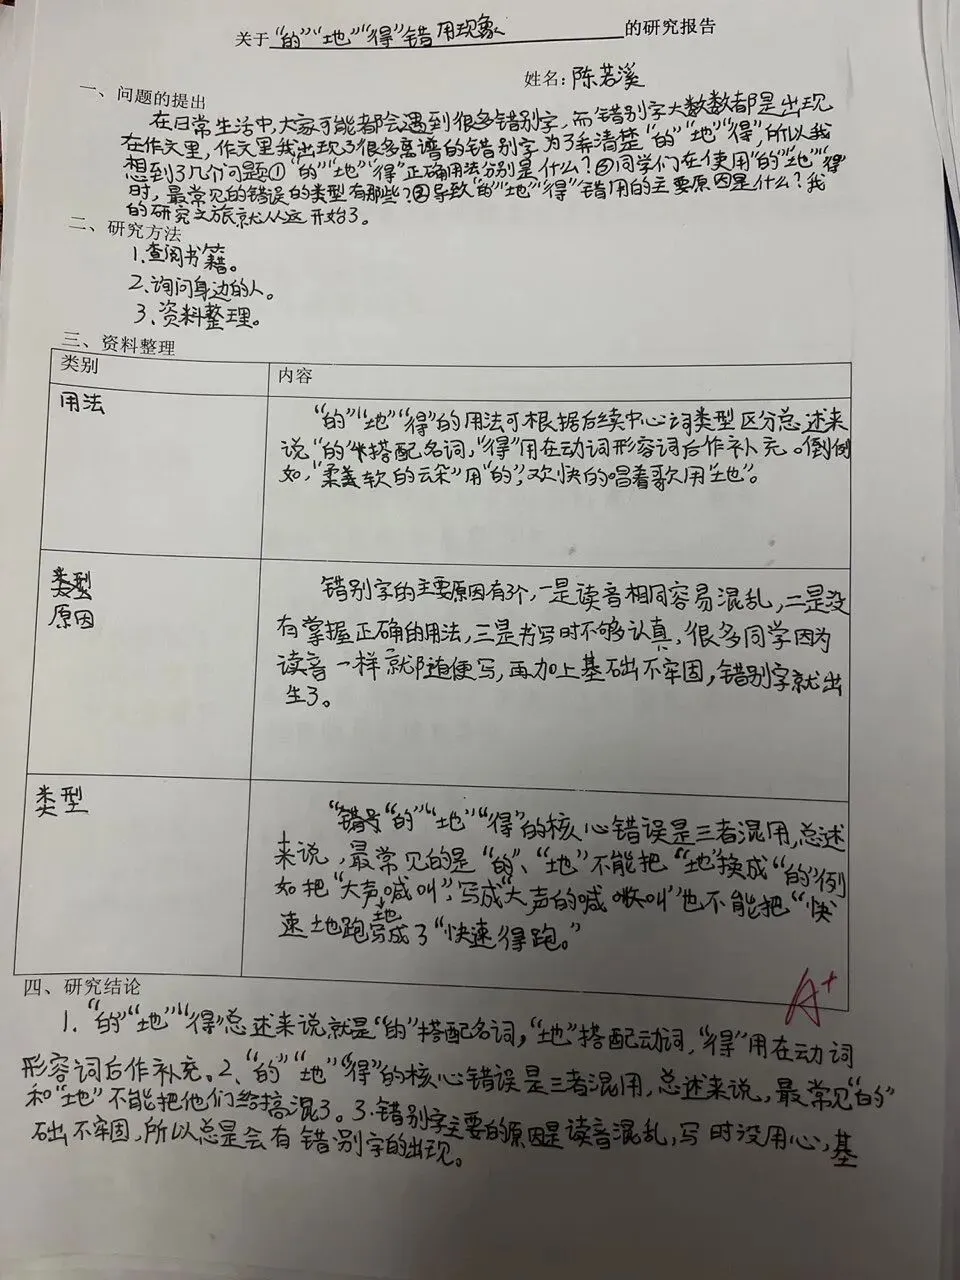 关于“的”“地”“得”错用现象的研究报告
姓名：陈若溪
一、问题的提出
在日常生活中，大家可能都会遇到很多错别字，而错别字大数数都是出现
在作文里，作文里我出现了很多离谱的错别字为了弄清楚“的”“地”“得”，所以我
想到了几个问题①“的”“地”“得”正确用法分别是什么？②同学们在使用“的”“地”“得”
时，最常见的错误的类型有那些？③导致“的”“地”“得”错用的主要原因是什么？我
的研究之旅就从这开始了。
二、研究方法
1.查阅书籍。
2.询问身边的人。
3、资料整理。
三、资料整理
类别 内容
用法
“的”“地”“得”的用法可根据后续中心词类型区分总述来
说“的”搭配名词，“得”用在动词形容词后作补充。例
如，“柔软的云朵”用“的”，欢快的唱着歌用“地”。
类型
原因
错别字的主要原因有3个，一是读音相同容易混乱，二是没
有掌握正确的用法，三是书写时不够认真，很多同学因为
读音一样就随便写，再加上基础不牢固，错别字就出
生了。
类型
“的”“地”“得”的核心错误是三者混用，总述
来说，最常见的是“的”、“地”不能把“地”换成“的”例
如把“大声喊叫”，写成“大声的喊叫”也不能把“快
地
速地跑写成了“快速得跑。”
A+
四、研究结论
1.“的”“地”“得”总述来说就是“的”搭配名词，“地”搭配动词，“得”用在动词
形容词后作补充。2、“的”“地”“得”的核心错误是三者混用，总述来说，最常见“的”
和“地”不能把他们给搞混了。3.错别字主要的原因是读音混乱，写时没用心，基
础不牢固，所以总是会有错别字的出现。